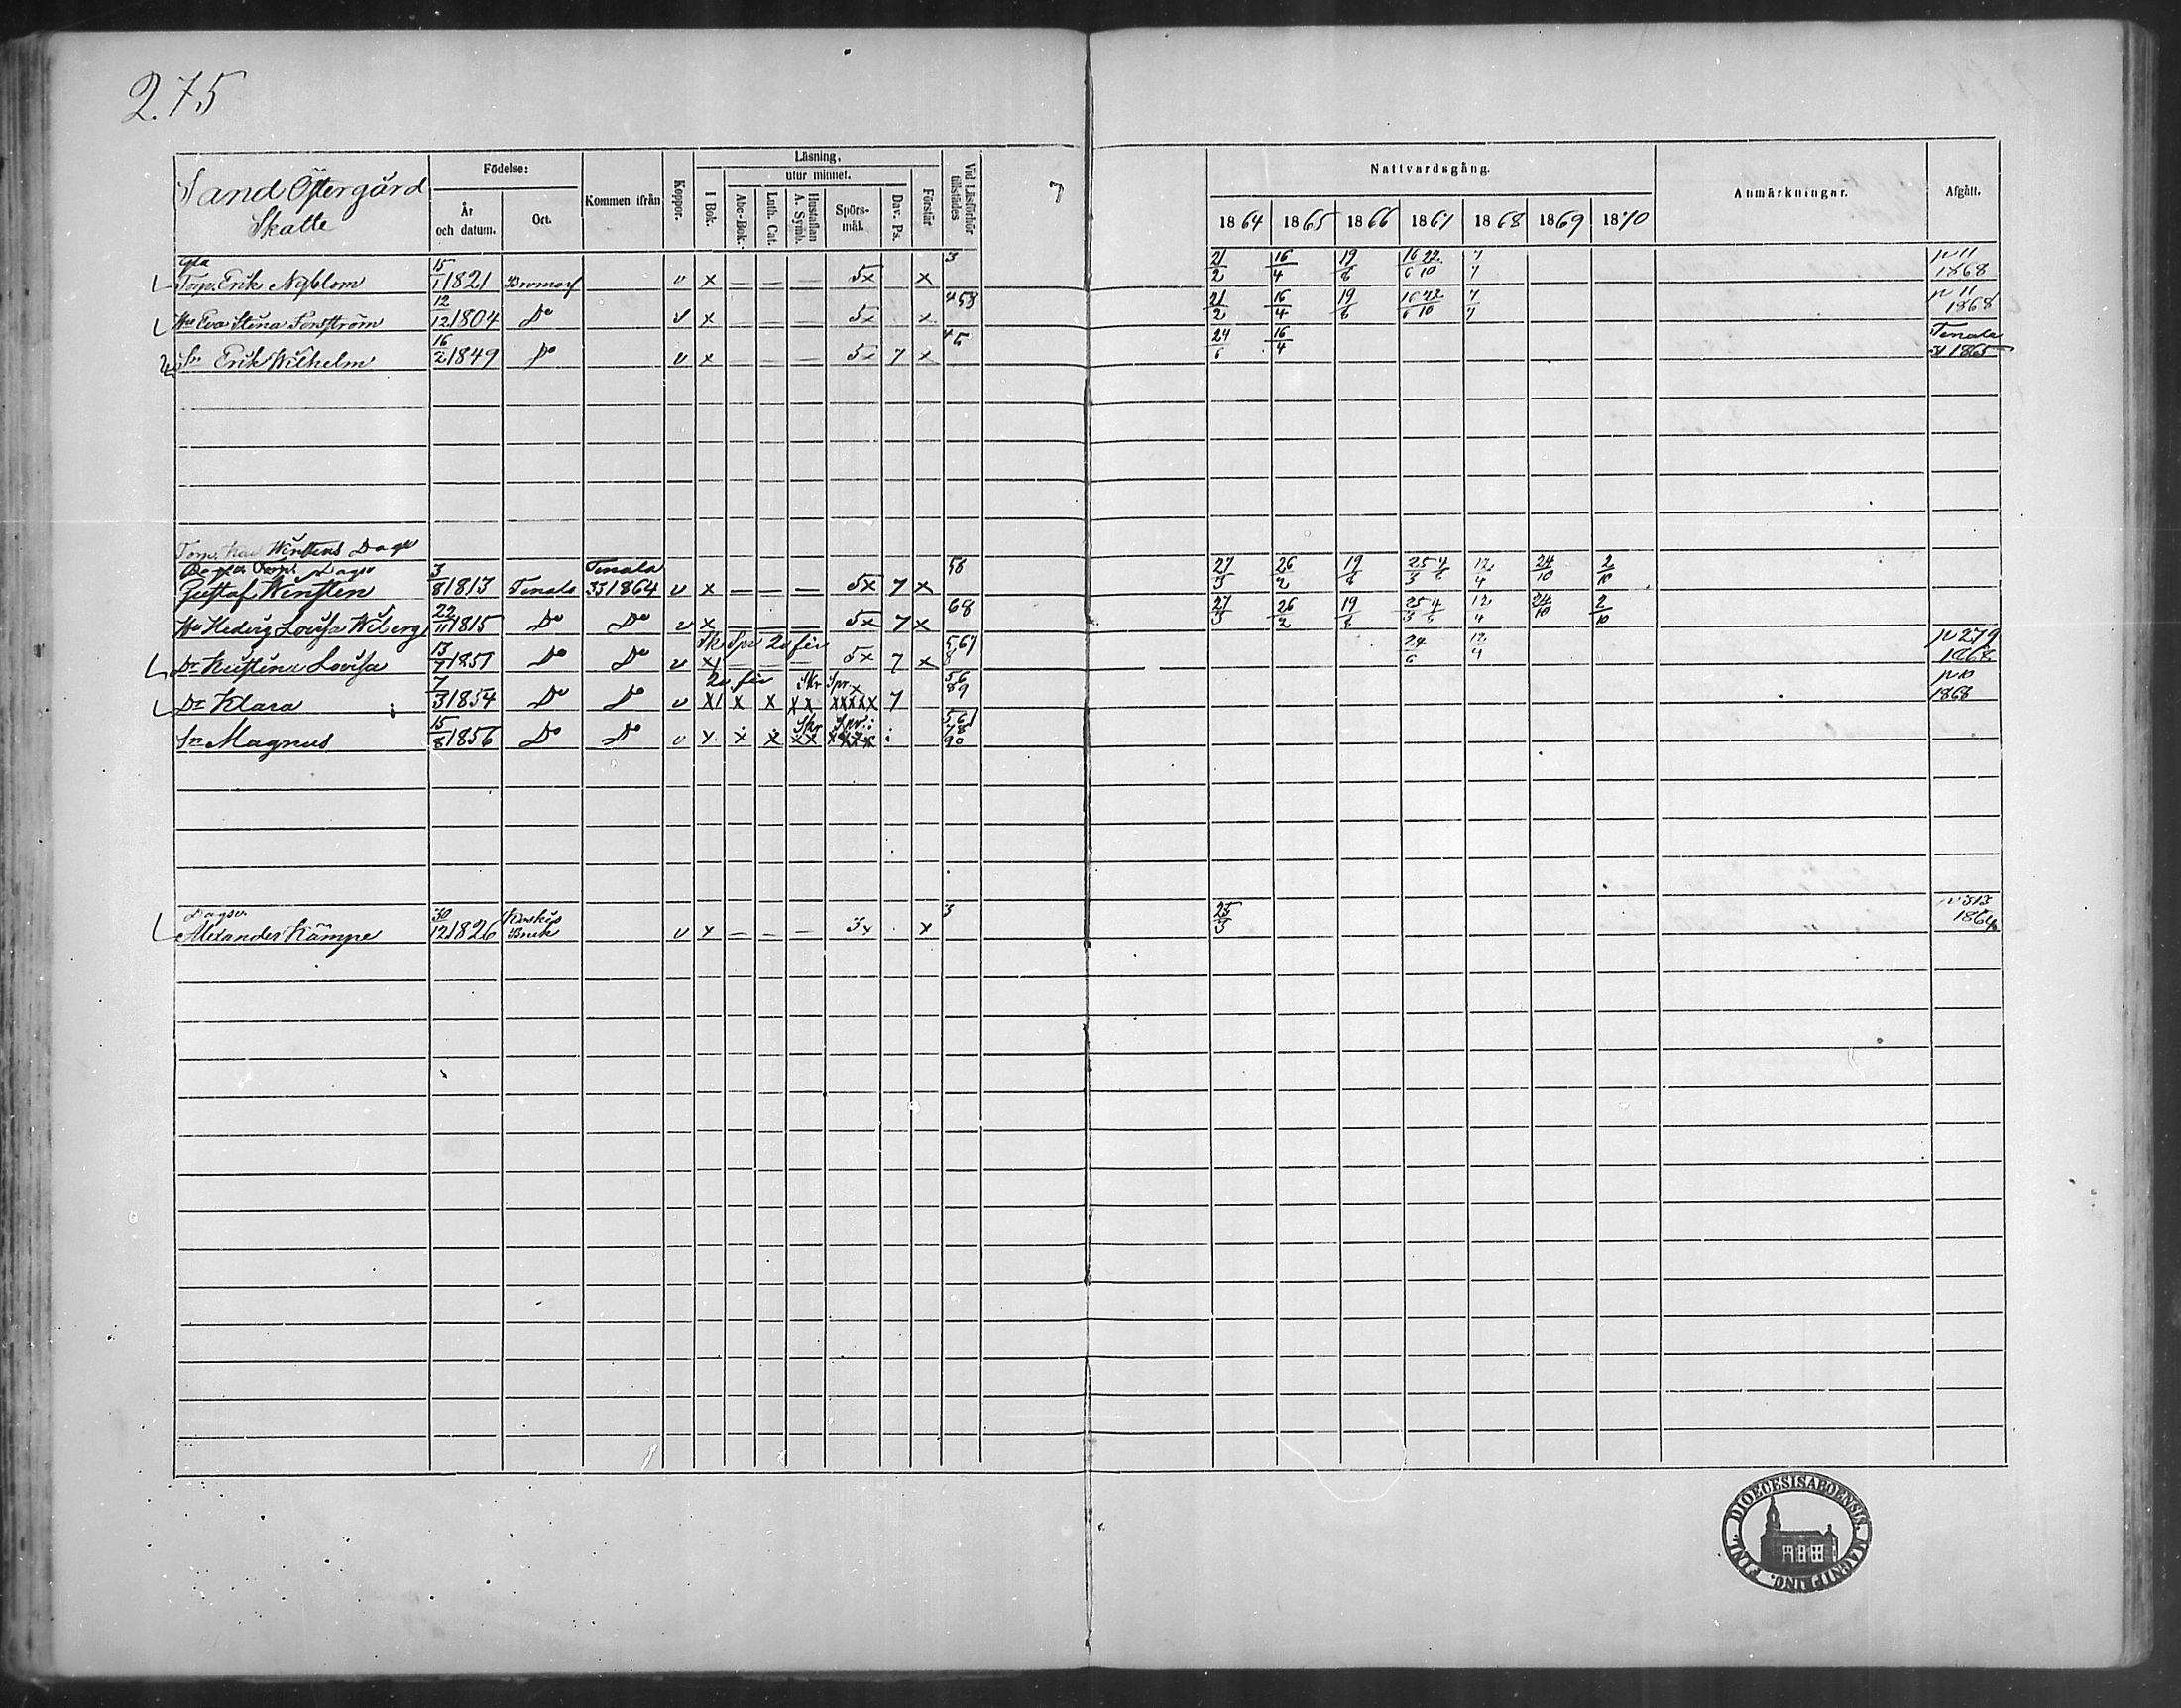 275
Sand Östergård
Skatte
Födelse:
År
och datum.
Ort.
Kommen ifrån
Koppor.
Läsning,
utur minnet.
I Bok.
Abc-Bok.
Luth. Cat.
Hustaflan
A. Symb.
Spörs-
mål.
Dav. Ps.
Förstår
Vid Läsförhör
tillstädes
7
Nattvardsgång.
1864 1865 1866 1867 1868 1869 1870
Anmärkningar.
Afgått.
gla
Torp. Erik Nyblom 15/1 1821 Bromarf v x — — — 5x x 3 21/2 16/4 19/8 16/6 22/10 7/7 p 11 1868
Hu Eva Stina Fonström 12/12 1804 Do v x — — — 5x x 458 21/2 16/4 19/8 16/6 22/10 7/7 p 11 1868
Sn Erik Wilhelm 16/2 1849 Do v x — — — 5x 7 x 45 24/6 16/4 Tenala 1865
Torp. Winstens Dagsv
Dagsv
Gustaf Winsten 3/8 1813 Tenala Tenala 1864 v x — — — 5x 7 x 58 27/3 26/2 19/8 25/3 4/6 12/4 24/10 2/10
Hu Hedvig Lovisa Wiberg 22/11 1815 Do Do v x — — — 5x 7 x 68 27/3 26/2 19/8 25/3 4/6 12/4 24/10 2/10
Dr Kristina Lovisa 13/7 1851 Do Do v x — — — 5x 7 x 567 8 24/6 12/4 p 279 1868
Dr Klara 7/3 1854 Do Do v x x x xx xxxxx 7 56 89 p 10 1868
Sn Magnus 15/8 1856 Do Do v x x x xx xxxx 561 78 90
Dagsv.
Alexander Kämpe 30/12 1826 Koskis Bruk v x — — — 3x x 3 25/3 p 313 1864
FINL. DIOECESIS ABOENSIS. MAGNI PRINC.